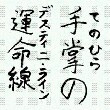 てのひら
手掌の
デスティニーライン
運命線